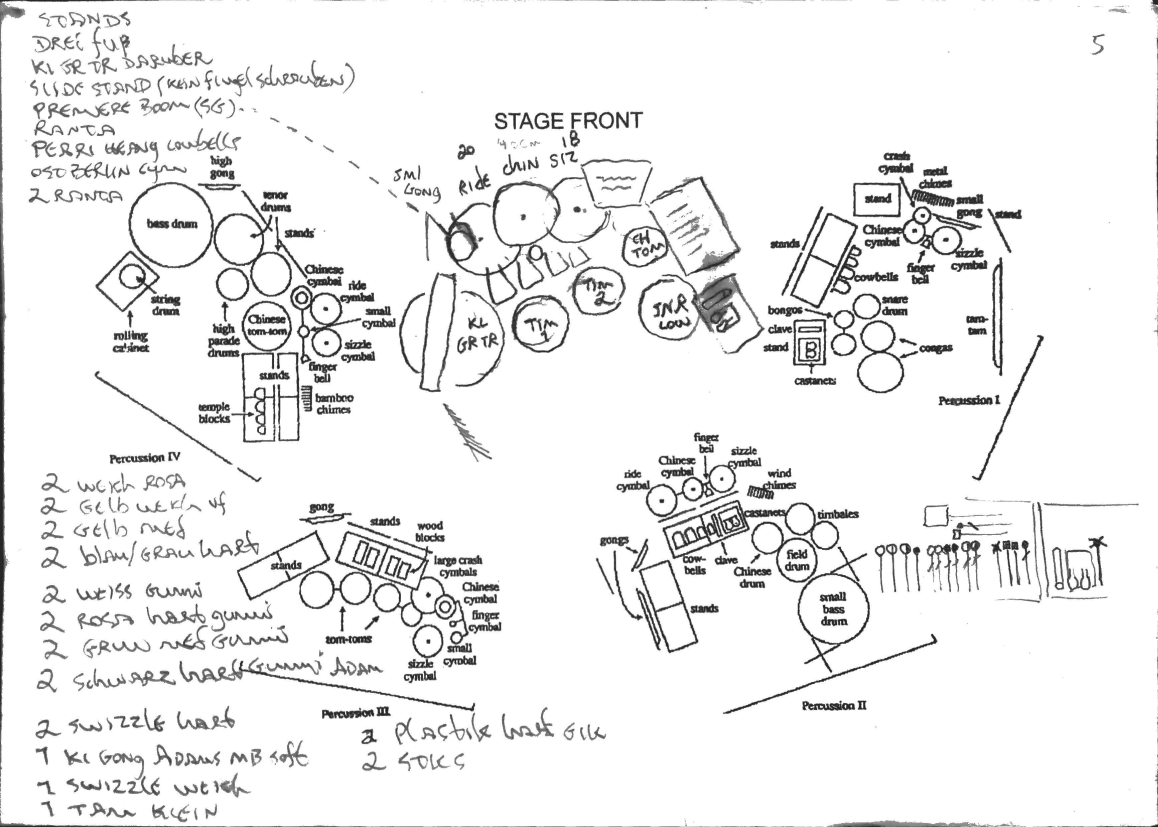 STANDS
DREi fuß
KL GR TR DARÜBER
SLIDE STAND (KEIN flügelschrauben)
PREMIERE BOOM (SG)
RANTA
PERRI cowbells
OST BERLIN cym
2 RANTA
5
STAGE FRONT
20
40cm
18
RIDE
CHIN
SIZ
SML
GONG
CH
TOM
TIM
2
TIM
1
SNR
LOW
KL
GR TR
high
gong
tenor
drums
bass drum
stands
Chinese
cymbal
ride
cymbal
string
drum
small
cymbal
rolling
cabinet
high
parade
drums
Chinese
tom-tom
sizzle
cymbal
finger
bell
stands
bamboo
chimes
temple
blocks
Percussion IV
crash
cymbal
metal
chimes
stand
small
gong
stand
stands
Chinese
cymbal
sizzle
cymbal
finger
bell
cowbells
bongos
snare
drum
clave
stand
tam-
tam
congas
castanets
Percussion I
2 WEICH ROSA
2 GELB WEICH
2 GELB MED
2 BLAU/GRAU HART
2 WEISS GUMMI
2 ROSA hart gummi
2 GRÜN MED GUMMI
2 SCHWARZ HART GUMMI ADAM
2 SWIZZLE hart
1 KL GONG ADAMS MB soft
1 SWIZZLE WEICH
1 TAM KLEIN
gong
stands
wood
blocks
stands
large crash
cymbals
Chinese
cymbal
finger
cymbal
tom-toms
small
cymbal
sizzle
cymbal
Percussion III
2 PLASTIK hart
2 STKS
finger
bell
Chinese
cymbal
sizzle
cymbal
ride
cymbal
wind
chimes
castanets
timbales
gongs
cow-
bells
clave
Chinese
drum
field
drum
stands
small
bass
drum
Percussion II